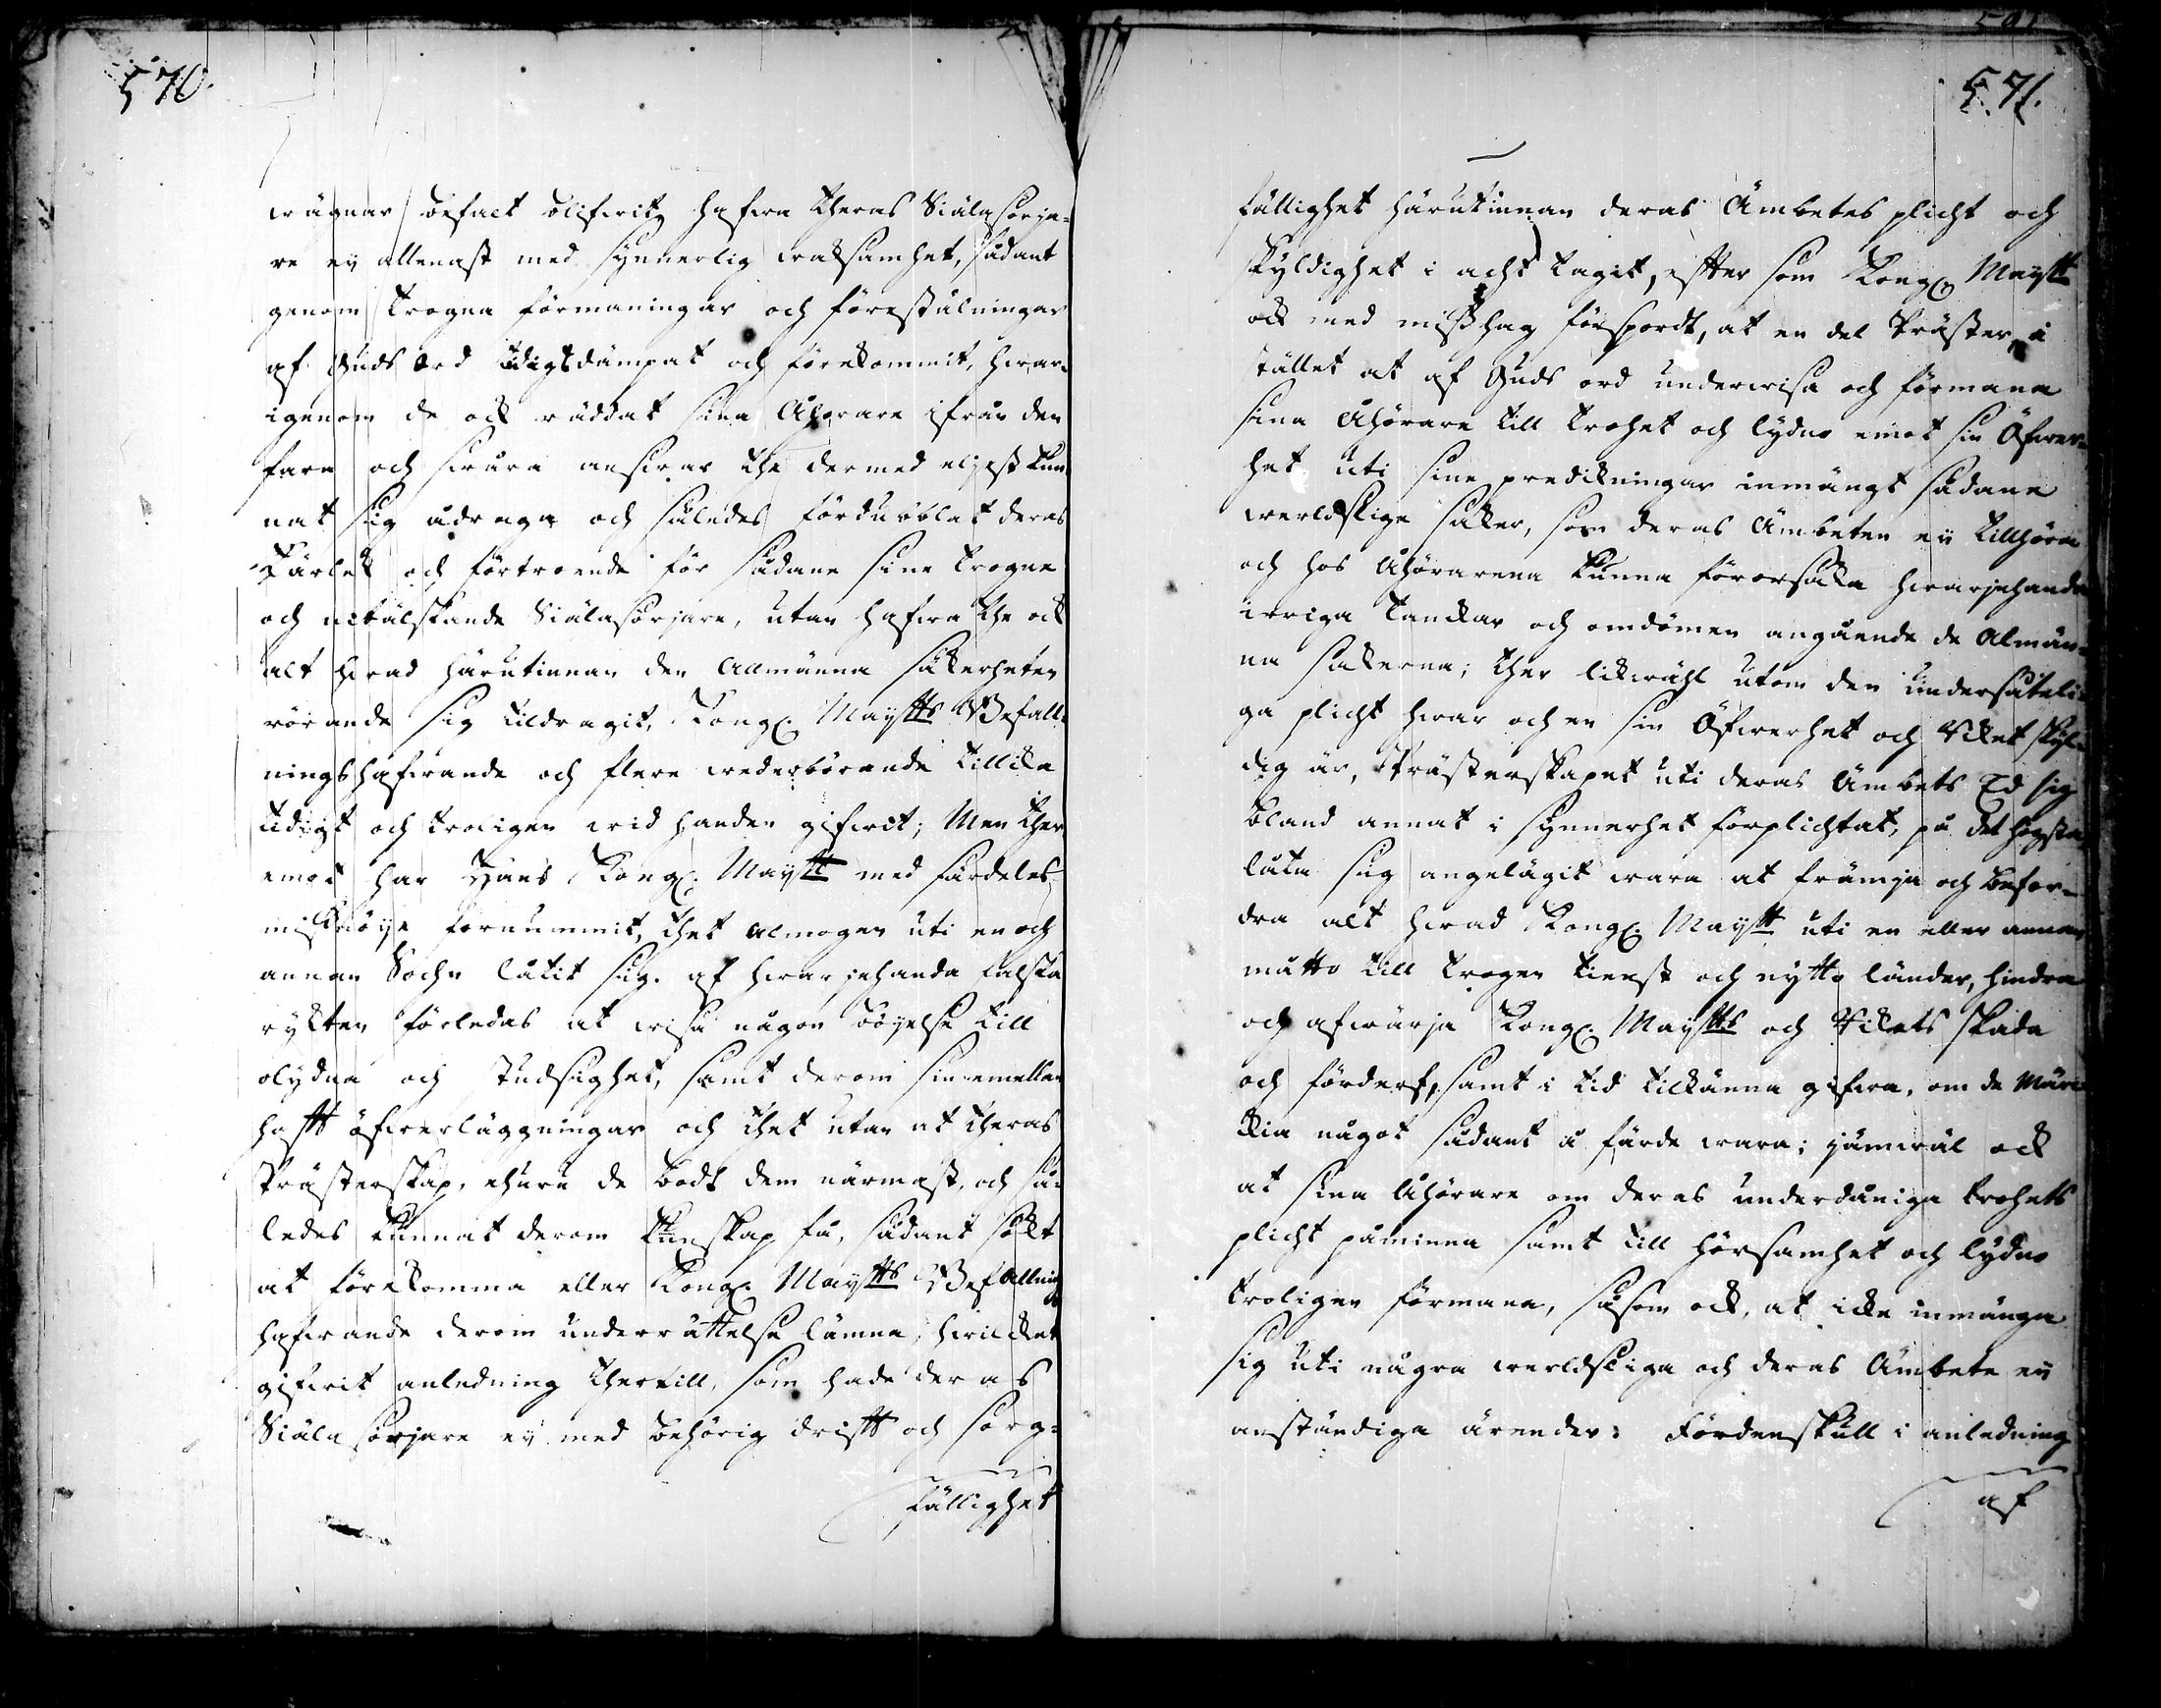 570.
wägnar befaet blifwit, hafwa theras Siälasörja-
re ey allenast med synnerlig waksamhet, sådant
genom trogna förmaningar och föreställningar
af Guds ord tidigt dämpat och förekommit, hwar-
igenom de ock räddat sina Åhörare ifrån den
fara och swåra answar the dermed eljest kun-
nat sig ådraga och således fördubblat deras
Kärlek och förtroende för sådane sine trogne
och nitälskande Siälasörjare, utan hafwa the ock
alt hwad härutinnan den Allmänna säkerheten
rörande sig tildragit, Kongl. Maijtts Befall-
ningshafwande och flere wederbörande tillika
tidigt och troligen wid handen gifwit; Men ther
emot har Hans Kongl. Maijtt med särdeles
missnöije förnummit, thet almogen uti en och
annan Sochn låtit sig af hwarjehanda falska
rykten förledas at wisa någon böijelse till
olydna och studsighet, samt derom sinsemellan
hafft öfwerläggningar och thet utan at theras
Prästerskap, ehuru de bodt dem närmast, och så-
ledes kunnat derom kunskap få, sådant sökt
at förekomma eller Kongl. Maijtts Befallning
hafwande derom underrättelse lämna, hwilcket
gifwit anledning thertill, som hade deras
Siälasörjare ey med behörig drifft och sorg-
fällighet
571.
fällighet härutinnan deras Ämbetes plicht och
skyldighet i acht tagit, effter som Kongl. Maijtt
ock med misshag försport, at en del Präster, i
stället at af Guds ord underwisa och förmana
sina Åhörare till trohet och lydno emot sin Öfwer-
het uti sine predikningar inmängt sådane
werldslige saker, som deras Ämbeten ey tillhöra
och hos Åhörarena kunna förorsaka hwarjehanda
irriga tanckar och omdömen angående de Almän-
na sakerna; Ther likwähl utom den undersåteli-
ga plicht hwar och en sin Öfwerhet och Riket skyl-
dig är, Prästerskapet uti deras Ämbets Ed sig
bland annat i synnerhet förplichtat, på det högsta
låta sig angelägit wara at främja och befor-
dra alt hwad Kongl. Maijtt uti en eller annan
måtto till trogen tienst och nytto länder, hindra
och afwärja Kongl. Maijtts och Rikets skada
och förderf, samt i tid tilkänna gifwa, om de mär-
kia något sådant å färde wara; jämwäl ock
at sina Åhörare om deras underdåniga trohets
plicht påminna samt till hörsamhet och lydno
troligen förmana, såsom ock, at icke inmänga
sig uti några werldsliga och deras Ämbete ey
anständiga ärender: Fördenskull i anledning
af